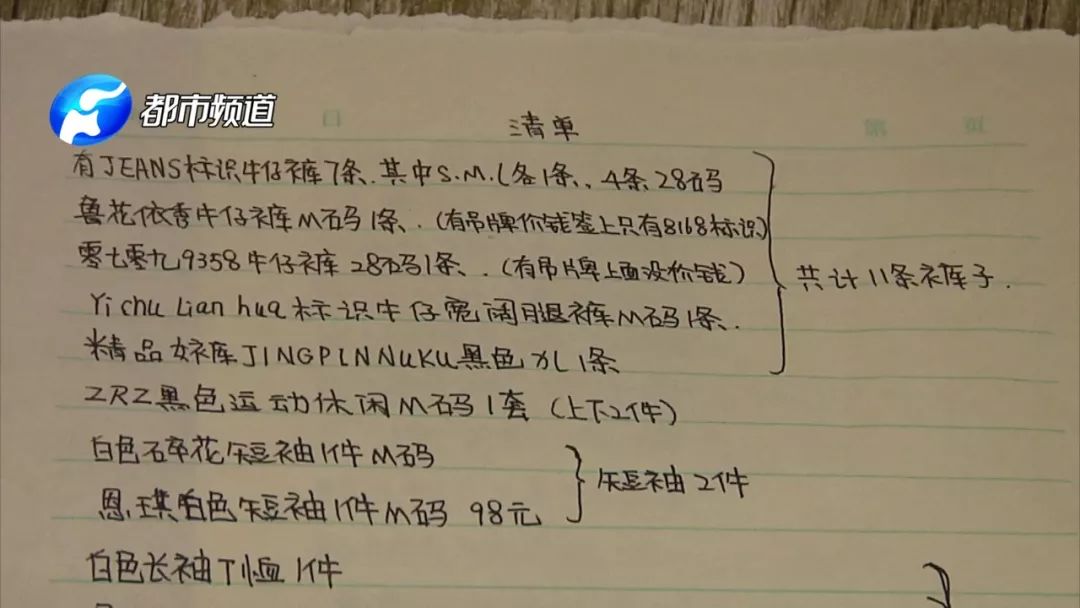 都市频道
清单
有JEANS标识牛仔裤7条.其中S.M.L各1条、4条28码
鲁花依香牛仔裤M码1条、.(有吊牌价钱签上只有8168标识)
零七零九9358牛仔裤28码1条、.(有吊牌上面没价钱)
共计11条裤子.
Yi chu Lian hua标识牛仔宽阔腿裤M码1条.
精品女裤JINGPINNUKU黑色XL1条
ZRZ黑色运动休闲M码1套(上下2件)
白色碎花短袖1件M码
短袖2件
恩琪白色短袖1件M码 98元
白色长袖T恤1件